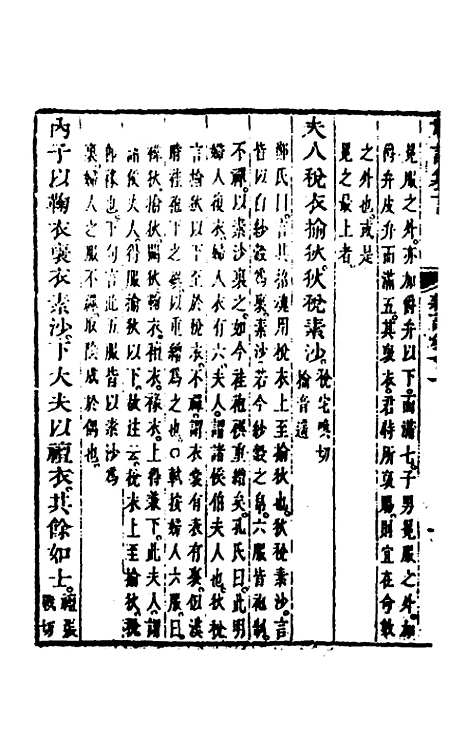 冕服之外亦加爵弁以下而滿七子男冕服之外加
爵弁皮弁而滿五其襃衣君特所襃賜則宜在命數
之外也或是
冕之最上者
夫人稅衣揄狄狄稅素沙稅它喚切揄音遥
鄭氏曰言其招魂用稅衣上至揄也狄稅素沙言
皆以白紗縠爲裏素沙若今紗縠之帛六服皆袍制
不襌以素沙裏之如今袿袍襈重繒矣孔氏曰此明
婦人復衣婦人衣有六夫人謂諸侯伯夫人也稅
言揄狄以下至於稅衣不襌謂衣裳有表有裏似漢
時袿袍下之襈以重繒爲之也軾按婦人六服曰
褘狄揄狄闕狄鞠衣襢衣褖衣上得兼下此夫人謂
諸侯夫人得服揄狄以下故注云稅衣上至揄狄稅
卽褖也下句言此五服皆以素沙爲
裏婦人之服不襌取陰成於偶也
內子以鞠衣襃衣素沙下大夫以襢衣其餘如士襢張戰切